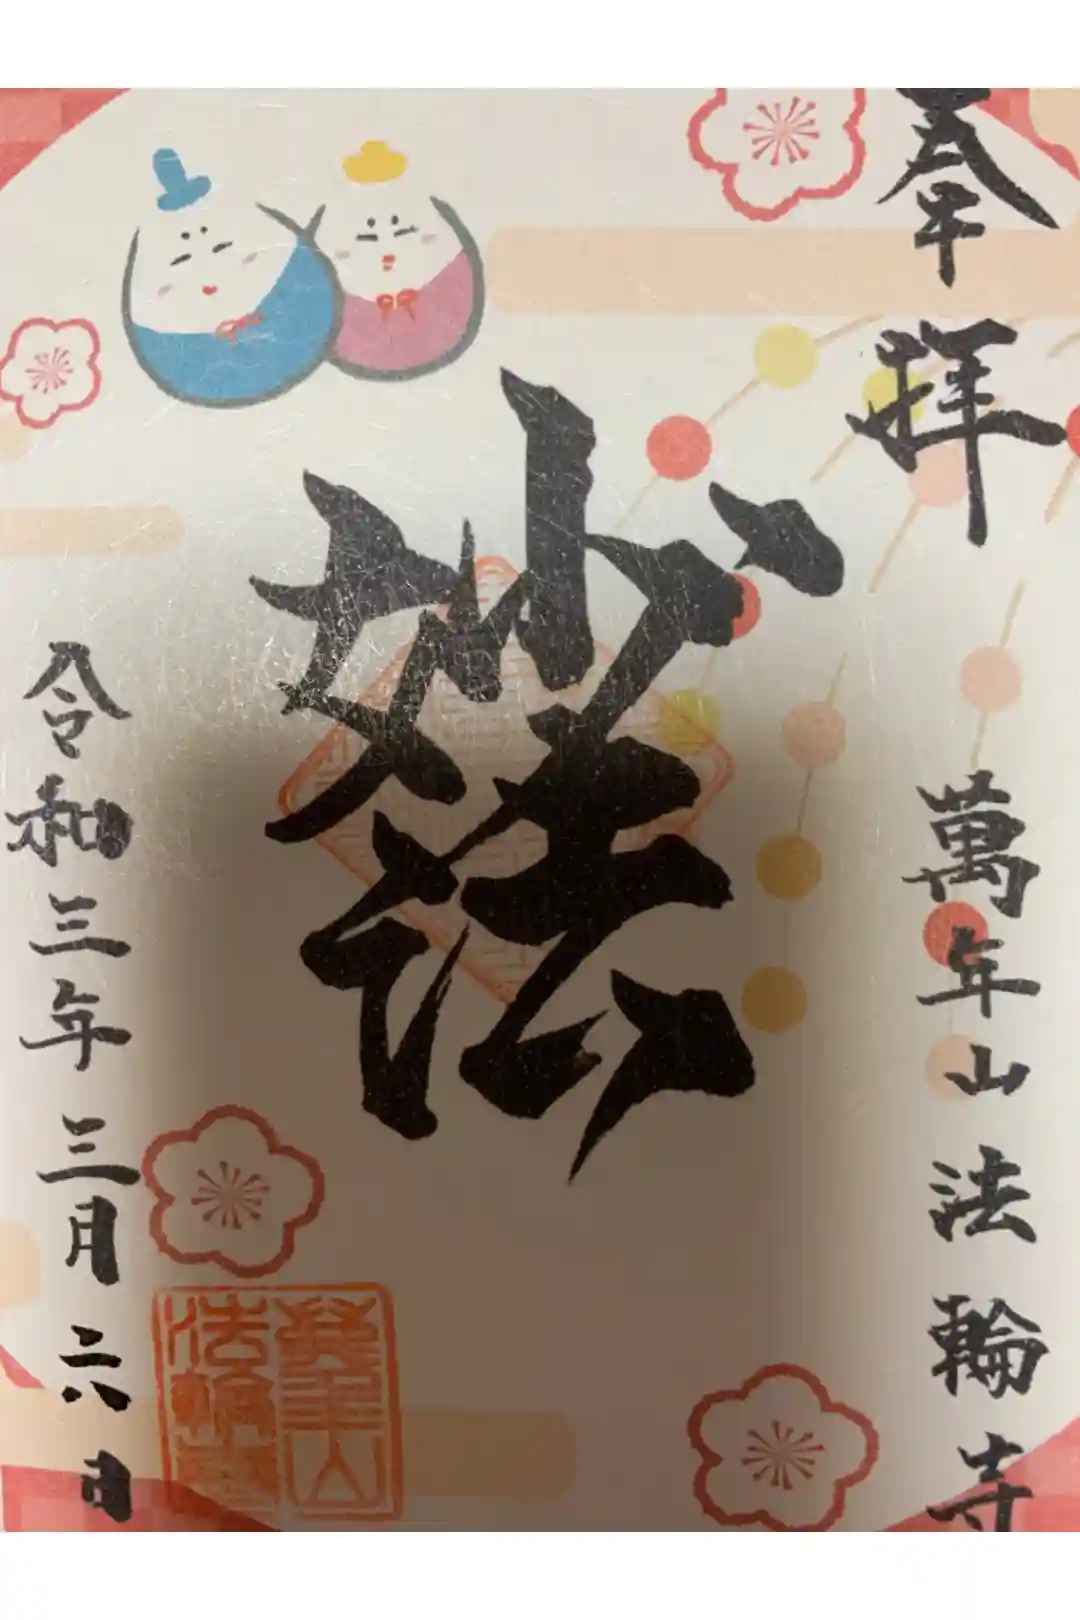 奉拝
萬年山法輪寺
妙法
令和三年三月二六日
萬年山
法輪寺